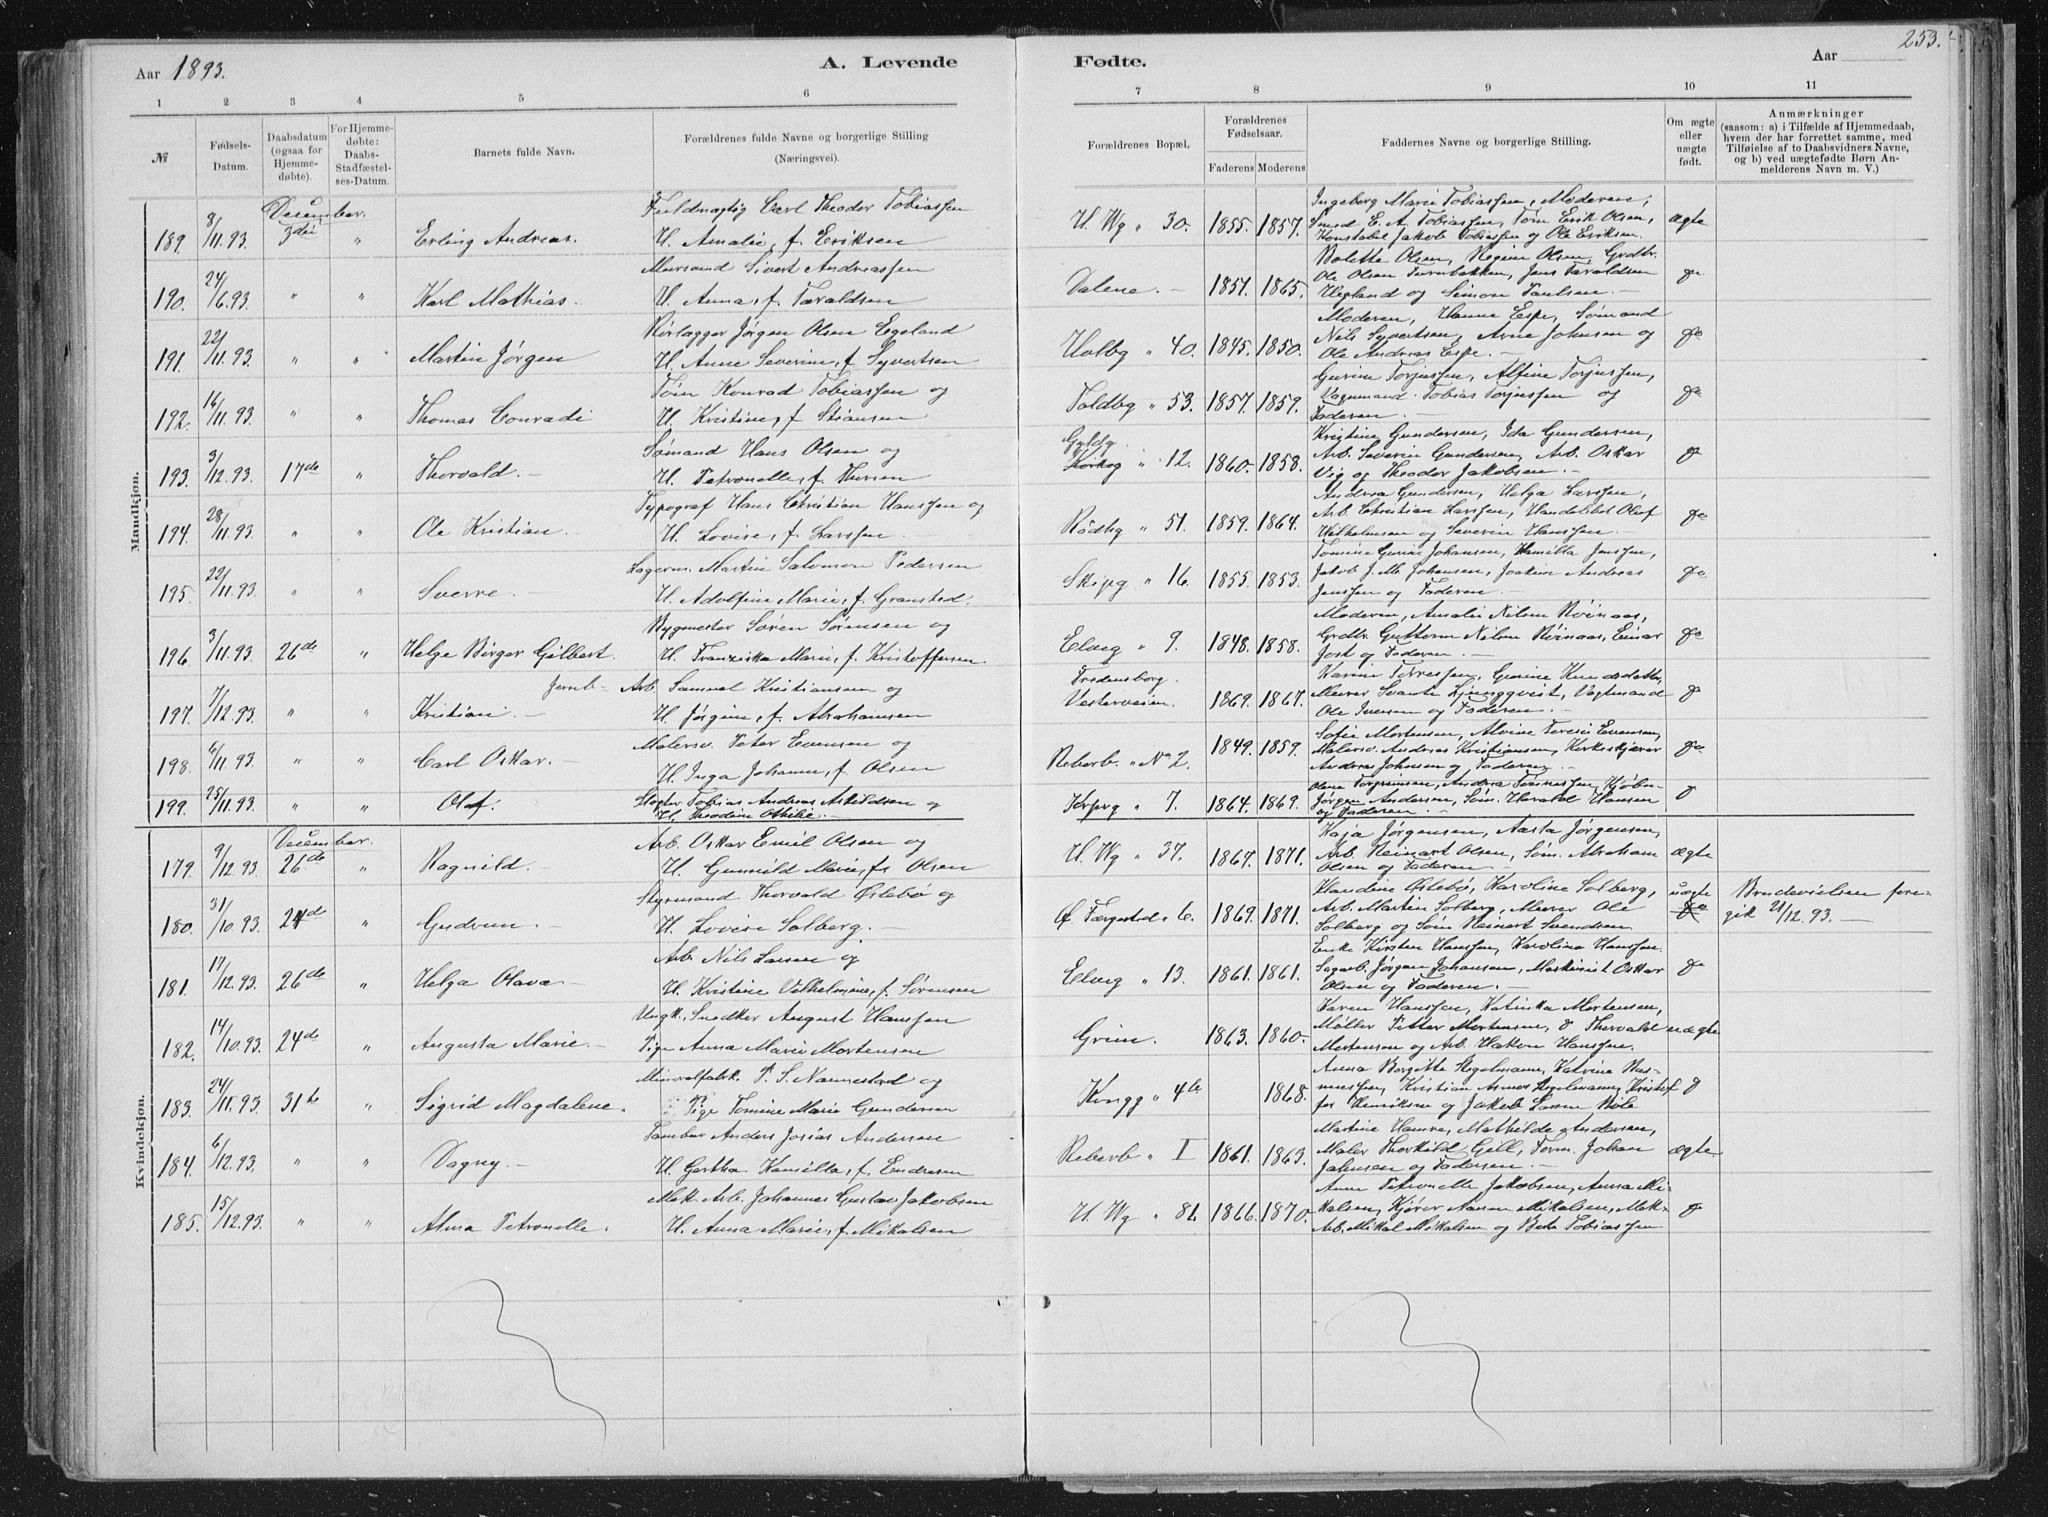 Aar 1893.
A. Levende
Fødte.
Aar
253.
1 2 3 4 5 6 7 8 9 10 11
№
Fødsels-
Datum.
Daabsdatum
(ogsaa for
Hjemme-
døbte).
For Hjemme-
døbte:
Daabs-
Stadfæstel-
ses-Datum.
Barnets fulde Navn.
Forældrenes fulde Navne og borgerlige Stilling
(Næringsvei).
Forældrenes Bopæl.
Forældrenes
Fødselsaar.
Faderens Moderens
Faddernes Navne og borgerlige Stilling
Om ægte
eller
uægte
født.
Anmærkninger
(saasom: a) i Tilfælde af Hjemmedaab,
hvem der har forrettet samme, med
Tilføielse af to Daabsvidners Navne,
og b) ved uægtefødte Børn An-
melderens Navn m. V.)
Mandkjøn.
December.
189. 8/11.93. 3die " Erling Andreas.
Fuldmægtig Carl Theodor Tobiassen
H. Amalie, f. Eriksen
H. Wg " 30. 1855. 1857.
Ingeborg Marie Tobiassen, Moderen,
Smed E. A. Tobiassen, Tøm Erik Olsen,
Konstabel Jakob Tobiassen og Ole Eriksen.
ægte
190. 24/6.93. " " Karl Mathias.
Murmand Sivert Andreassen
H. Anna, f. Taraldsen
Dalene. - 1857. 1865.
Bolette Olsen, Regine Olsen, Grdbr.
Ole Olsen, Jens Taraldsen
Hegland og Simon Paulsen. -
do
191. 22/11.93. " " Martin Jørgen
Rørlægger Jørgen Olsen Egeland
H. Anne Severine, f. Syvertsen
Holbg " 40. 1845. 1850.
Moderen, Hanne Espe, Sømand
Nils Syvertsen, Arne Johnsen og
Ole Andreas Espe. -
do
192. 16/11.93. " " Thomas Conradi
Tøm Konrad Tobiassen og
H. Kristine, f. Stiansen
Toldbg " 53. 1857. 1859.
Gurine Torjussen, Alfine Torjussen,
Vognmand Tobias Torjussen og
Faderen. -
do
193. 3/12.93. 17de " Thorvald. -
Sømand Hans Olsen og
H. Petronelle, f. Thorsen
Gyldg
Kirkeg " 12. 1860. 1858.
Kristine Gundersen, Ida Gundersen,
Arb. Severin Gundersen, Arb. Oskar
Vig og Theodor Jakobsen. -
do
194. 28/11.93. " " Ole Kristian. -
Typograf Hans Christian Hanssen og
H. Lovise, f. Larssen. -
Rødbg " 51. 1859. 1864.
Andrea Gundersen, Helga Larssen,
Arb. Christian Larssen, Handelsbt Oluf
Wilhelmsen og Severin Hanssen.
do
195. 22/11.93. " " Sverre. -
Lagerm. Martin Salomon Pedersen
H. Adolfine Marie, f. Gransted.
Skipg " 16. 1855. 1853.
Tomine Gurine Johansen, Kamilla Jenssen,
Jakob J. M. Johansen, Joakim Andreas
Jenssen og Faderen. -
do
196. 3/11.93. 26de " Helge Birger Gilbert.
Bygmester Søren Sørensen og
H. Franziska Marie, f. Kristoffersen
Elveg " 9. 1848. 1858.
Moderen, Amalie Nilsen Røinaas,
Grdbr. Guttorm Nilsen Røinaas, Einar
Jost og Faderen. -
do
197. 7/12.93. " " Kristian. -
Jernb- Arb. Samuel Kristiansen og
H. Jørgine, f. Abrahamsen
Fredensborg.
Vesterveien. 1869. 1867.
Karine Tørressen, Gurine Knudsdatter,
Murer Svante Ljungqvist, Vogtmand
Ole Iversen og Faderen. -
do
198. 6/11.93. " " Carl Oskar. -
Malersv. Peter Evensen og
H. Inga Johanne, f. Olsen
Reberb. " No 2. 1849. 1859.
Sofie Mortensen, Alvine Teresie Evensen,
Malersv. Andreas Kristiansen, Kirkeskjærer
Andreas Johnsen og Faderen. -
do
199. 25/11.93. " " Olaf. -
Slagter Tobias Andreas Askildsen og
H. Theodine Othilie. -
Kirkeg " 7. 1864. 1869.
Olene Torgrimsen, Andrea Tønnessen, Kjøbm.
Jørgen Andersen, Søm. Harald Hansen
og Faderen. -
do
Kvindekjøn.
December.
179. 9/12.93. 26de " Ragnild. -
Arb. Oskar Emil Olsen og
H. Gunnild Marie, f. Olsen
H. Wg " 37. 1867. 1871.
Kaja Jørgensen, Aasta Jørgensen,
Arb. Reinart Olsen, Søm. Abraham
Olsen og Faderen. -
ægte
180. 31/10.93. 24de " Gudrun. -
Styrmand Thorvald Østebø og
H. Lovise Solberg. -
Ø. Færgested. 6. 1869. 1871.
Klaudine Østebø, Karoline Solberg,
Arb. Martin Solberg, Murer Ole
Solberg og Søm Reinart Svendsen
uægte
do
Brudevielsen fore-
gik 21/12.93. -
181. 17/12.93. 26de " Helga Olava -
Arb. Nils Larsen og
H. Kristine Vilhelmine, f. Sørensen
Elveg " 13. 1861. 1861.
Enke Kirsten Hanssen, Karoline Hanssen.
Sagarb. Jørgen Johansen, Maskinist Oskar
Olsen og Faderen. -
do
182. 14/10.93. 24de " Augusta Marie. -
Ungk. Snedker August Hanssen
Pige Anna Marie Mortensen
Grim. 1863. 1860.
Karen Hanssen, Katinka Mortensen,
Møller Petter Mortensen, do Thorvald
Mortensen og Arb. Hakon Hanssen.
uægte
183. 24/11.93. 31te " Sigrid Magdalene.
Mineralfabk. P. S. Nannestad og
Pige Tomine Marie Gundersen
Kongg " 4b 1868.
Anna Bergitte Stegelmann, Katrine Ras-
mussen, Kristian Asmus Stegelmann, Kristof
fer Henriksen og Jakob Bøle
do
184. 6/12.93. " " Dagny. -
Tømber Anders Josias Andersen
H. Gertha Kamilla, f. Endresen
Reberb " I 1861. 1863.
Martine Hamre, Mathilde Andersen,
Maler Thorkild Gill, Tøm. Johan
Jahnsen og Faderen. -
ægte
185. 15/12.93. " " Alma Petronelle.
Mek. Arb. Johannes Gustav Jakobsen
H. Anna Marie, f. Mikalsen
H. Wg " 81. 1866. 1870.
Anne Petronelle Jakobsen, Anna Mi-
kalsen, Kjører Aanen Mikalsen, Mek.
Arb. Mikal Mikalsen og Berte Tobiassen
do